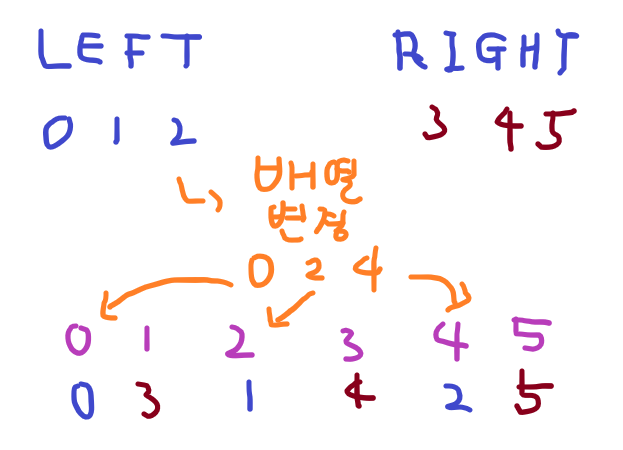 LEFT RIGHT
0 1 2 3 4 5
배열
변경
0 2 4
0 1 2 3 4 5
0 3 1 4 2 5